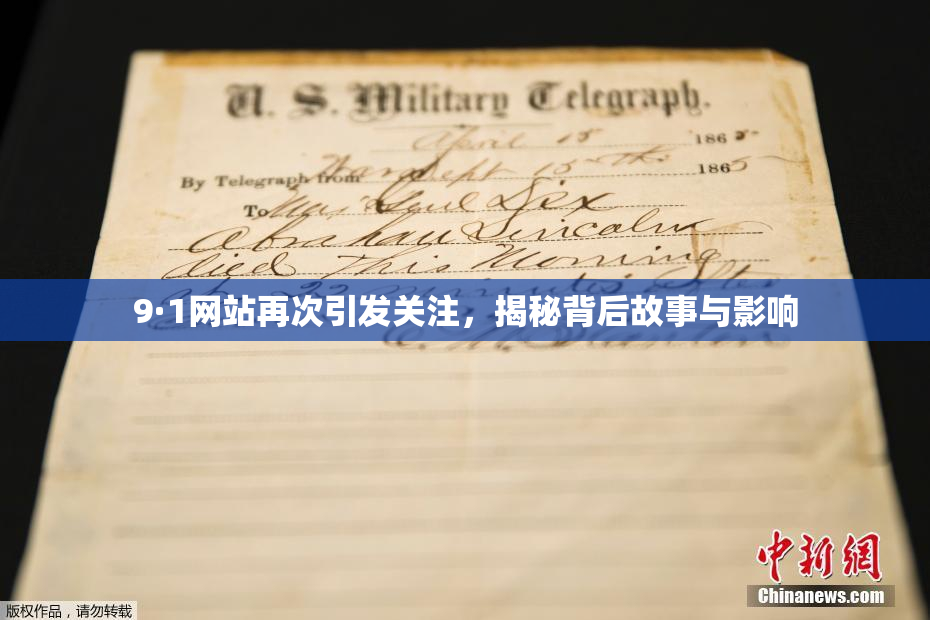 U. S. Military Telegraph.
April 15 1865
By Telegraph from War Dept 15th 1865
To Maj Genl Dix
Abraham Lincoln
died This Morning
at 22 minutes after
9·1网站再次引发关注，揭秘背后故事与影响
E. M. Stanton
中新网
Chinanews.com
版权作品，请勿转载